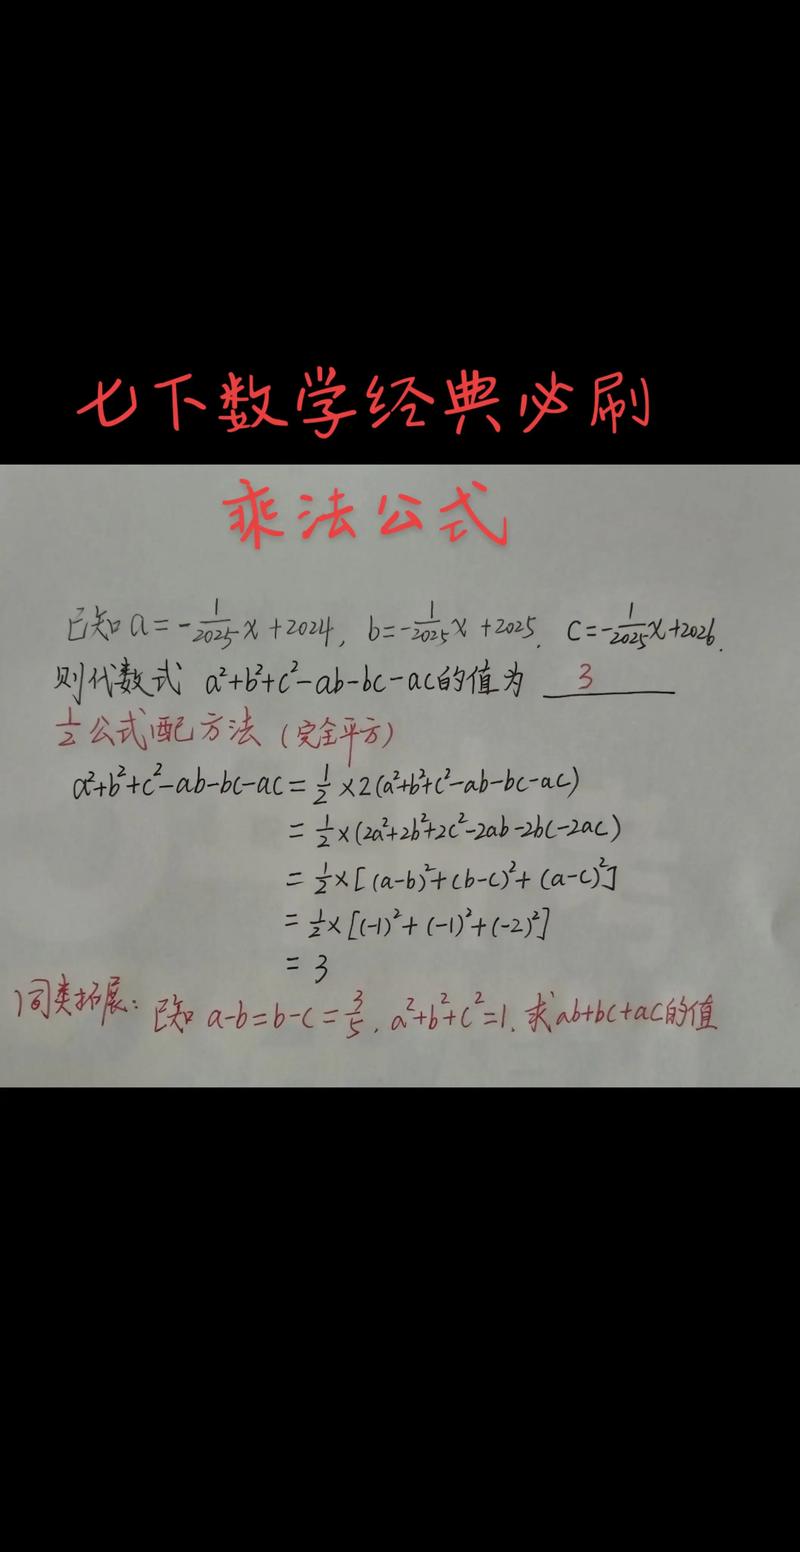 七下数学经典必刷
乘法公式
已知a=-1/2025x+2024, b=-1/2025x+2025, c=-1/2025x+2026,
则代数式 a²+b²+c²-ab-bc-ac的值为 3
1/2公式配方法(完全平方)
a²+b²+c²-ab-bc-ac=1/2×2(a²+b²+c²-ab-bc-ac)
=1/2×(2a²+2b²+2c²-2ab-2bc-2ac)
=1/2×[(a-b)²+(b-c)²+(a-c)²]
=1/2×[(-1)²+(-1)²+(-2)²]
=3
同类拓展:已知 a-b=b-c=3/5, a²+b²+c²=1, 求ab+bc+ac的值